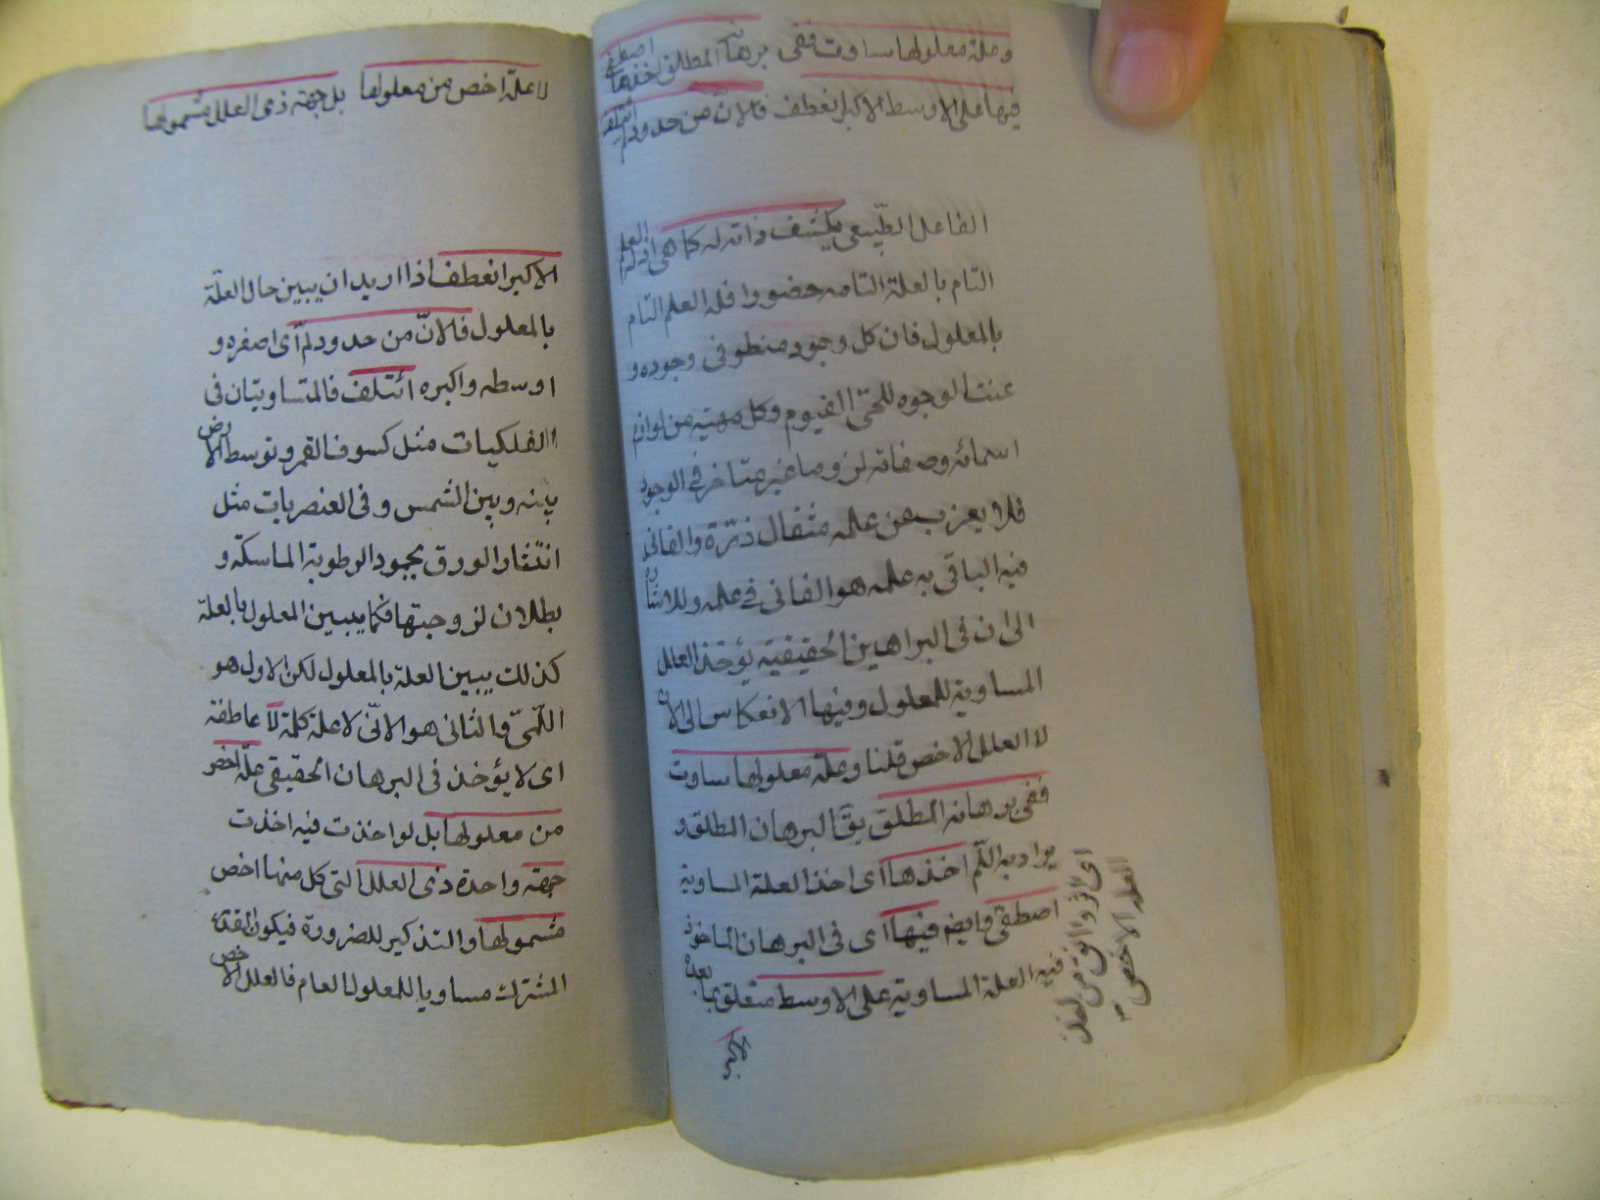 وعلة معلولها ساوت ففى برهانه المطلق اخذها اصطفى
فيها على الاوسط الاكبر انعطف فلانّ من حدود لمّ ائتلف
الفاعل الطبيعى يكشف ذاته له كما هى اذ له العلم
التام بالعلة التامه حضورا فله العلم التام
بالمعلول فان كل وجود منطو فى وجوده و
عنت الوجوه للحىّ القيوم وكل مهيته من لوازم
اسمائه وصفاته لزوما غير متاخر فى الوجود
فلا يعزب عن علمه مثقال ذرّة والفانى
فيه الباقى به علمه هو الفانى فى علمه وللاشارة
الى ان فى البراهين الحقيقيه يؤخذ العلل
المساوية للمعلول وفيها الانعكاس الى الان
لا العلل الاخص قلنا وعلة معلولها ساوت
ففى برهانه المطلق يقا البرهان المطلق و
يراد به اللّم اخذها اى اخذ العلة المساوية
اصطفى وايضم فيها اى فى البرهان الماخوذ
فيه العلة المساوية على الاوسط متعلق بما بعده
العلة الاخص
لا علة اخص من معلولها بل جهته ذى العلل مشمولها
الاكبر انعطف اذا اريد ان يبين حال العلة
بالمعلول فلانّ من حدود لمّ اى اصغره و
اوسطه واكبره ائتلف فالمتساويتان فى
الفلكيات مثل كسوف القمر وتوسط الارض
بينه وبين الشمس وفى العنصريات مثل
انتثار الورق بجمود الرطوبة الماسكة و
بطلان لزوجتها فكما يبين المعلول بالعلة
كذلك يبين العلة بالمعلول لكن الاول هو
اللمّى والثانى هو الانّى لا علة كلمة لا عاطفة
اى لا يؤخذ فى البرهان الحقيقى علة اخص
من معلولها بل لو اخذت فيه اخذت
جهته واحدة ذى العلل التى كل منها اخص
مشمولها والتذكير للضرورة فيكون القدر
المشترك مساويا للمعلول العام فالعلل الاخص